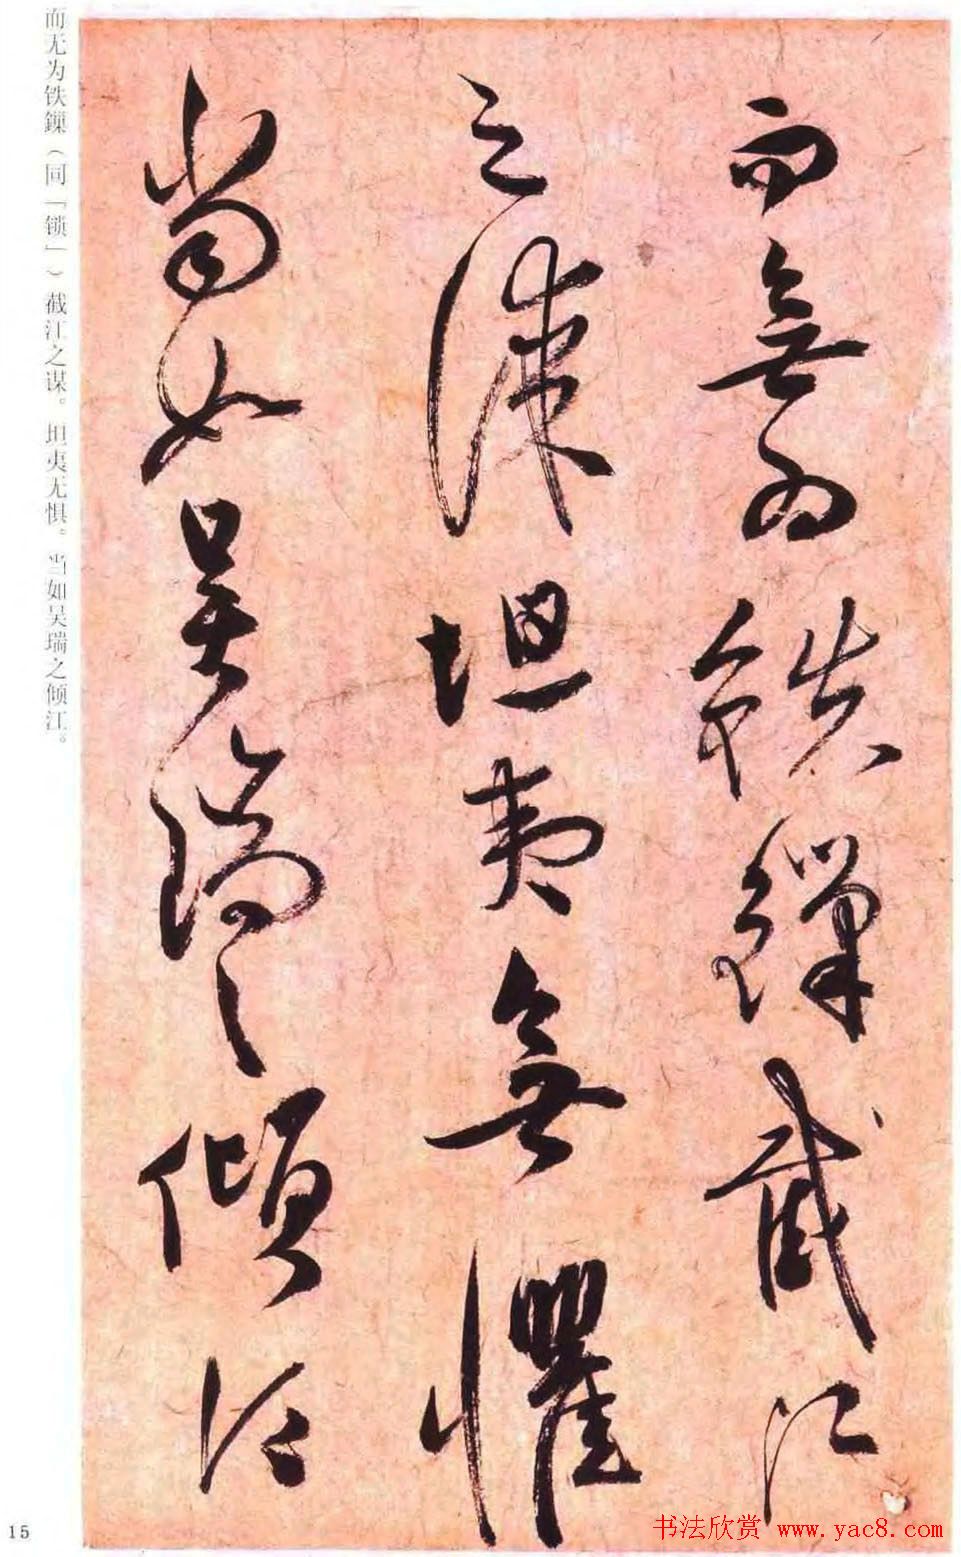 而無为鐵鏁截江
之謀坦夷無懼
當如吴瑞之傾江
而无为铁鏁（同「锁」）截江之谋。坦夷无惧。当如吴瑞之倾江。
15
书法欣赏 www.yac8.com